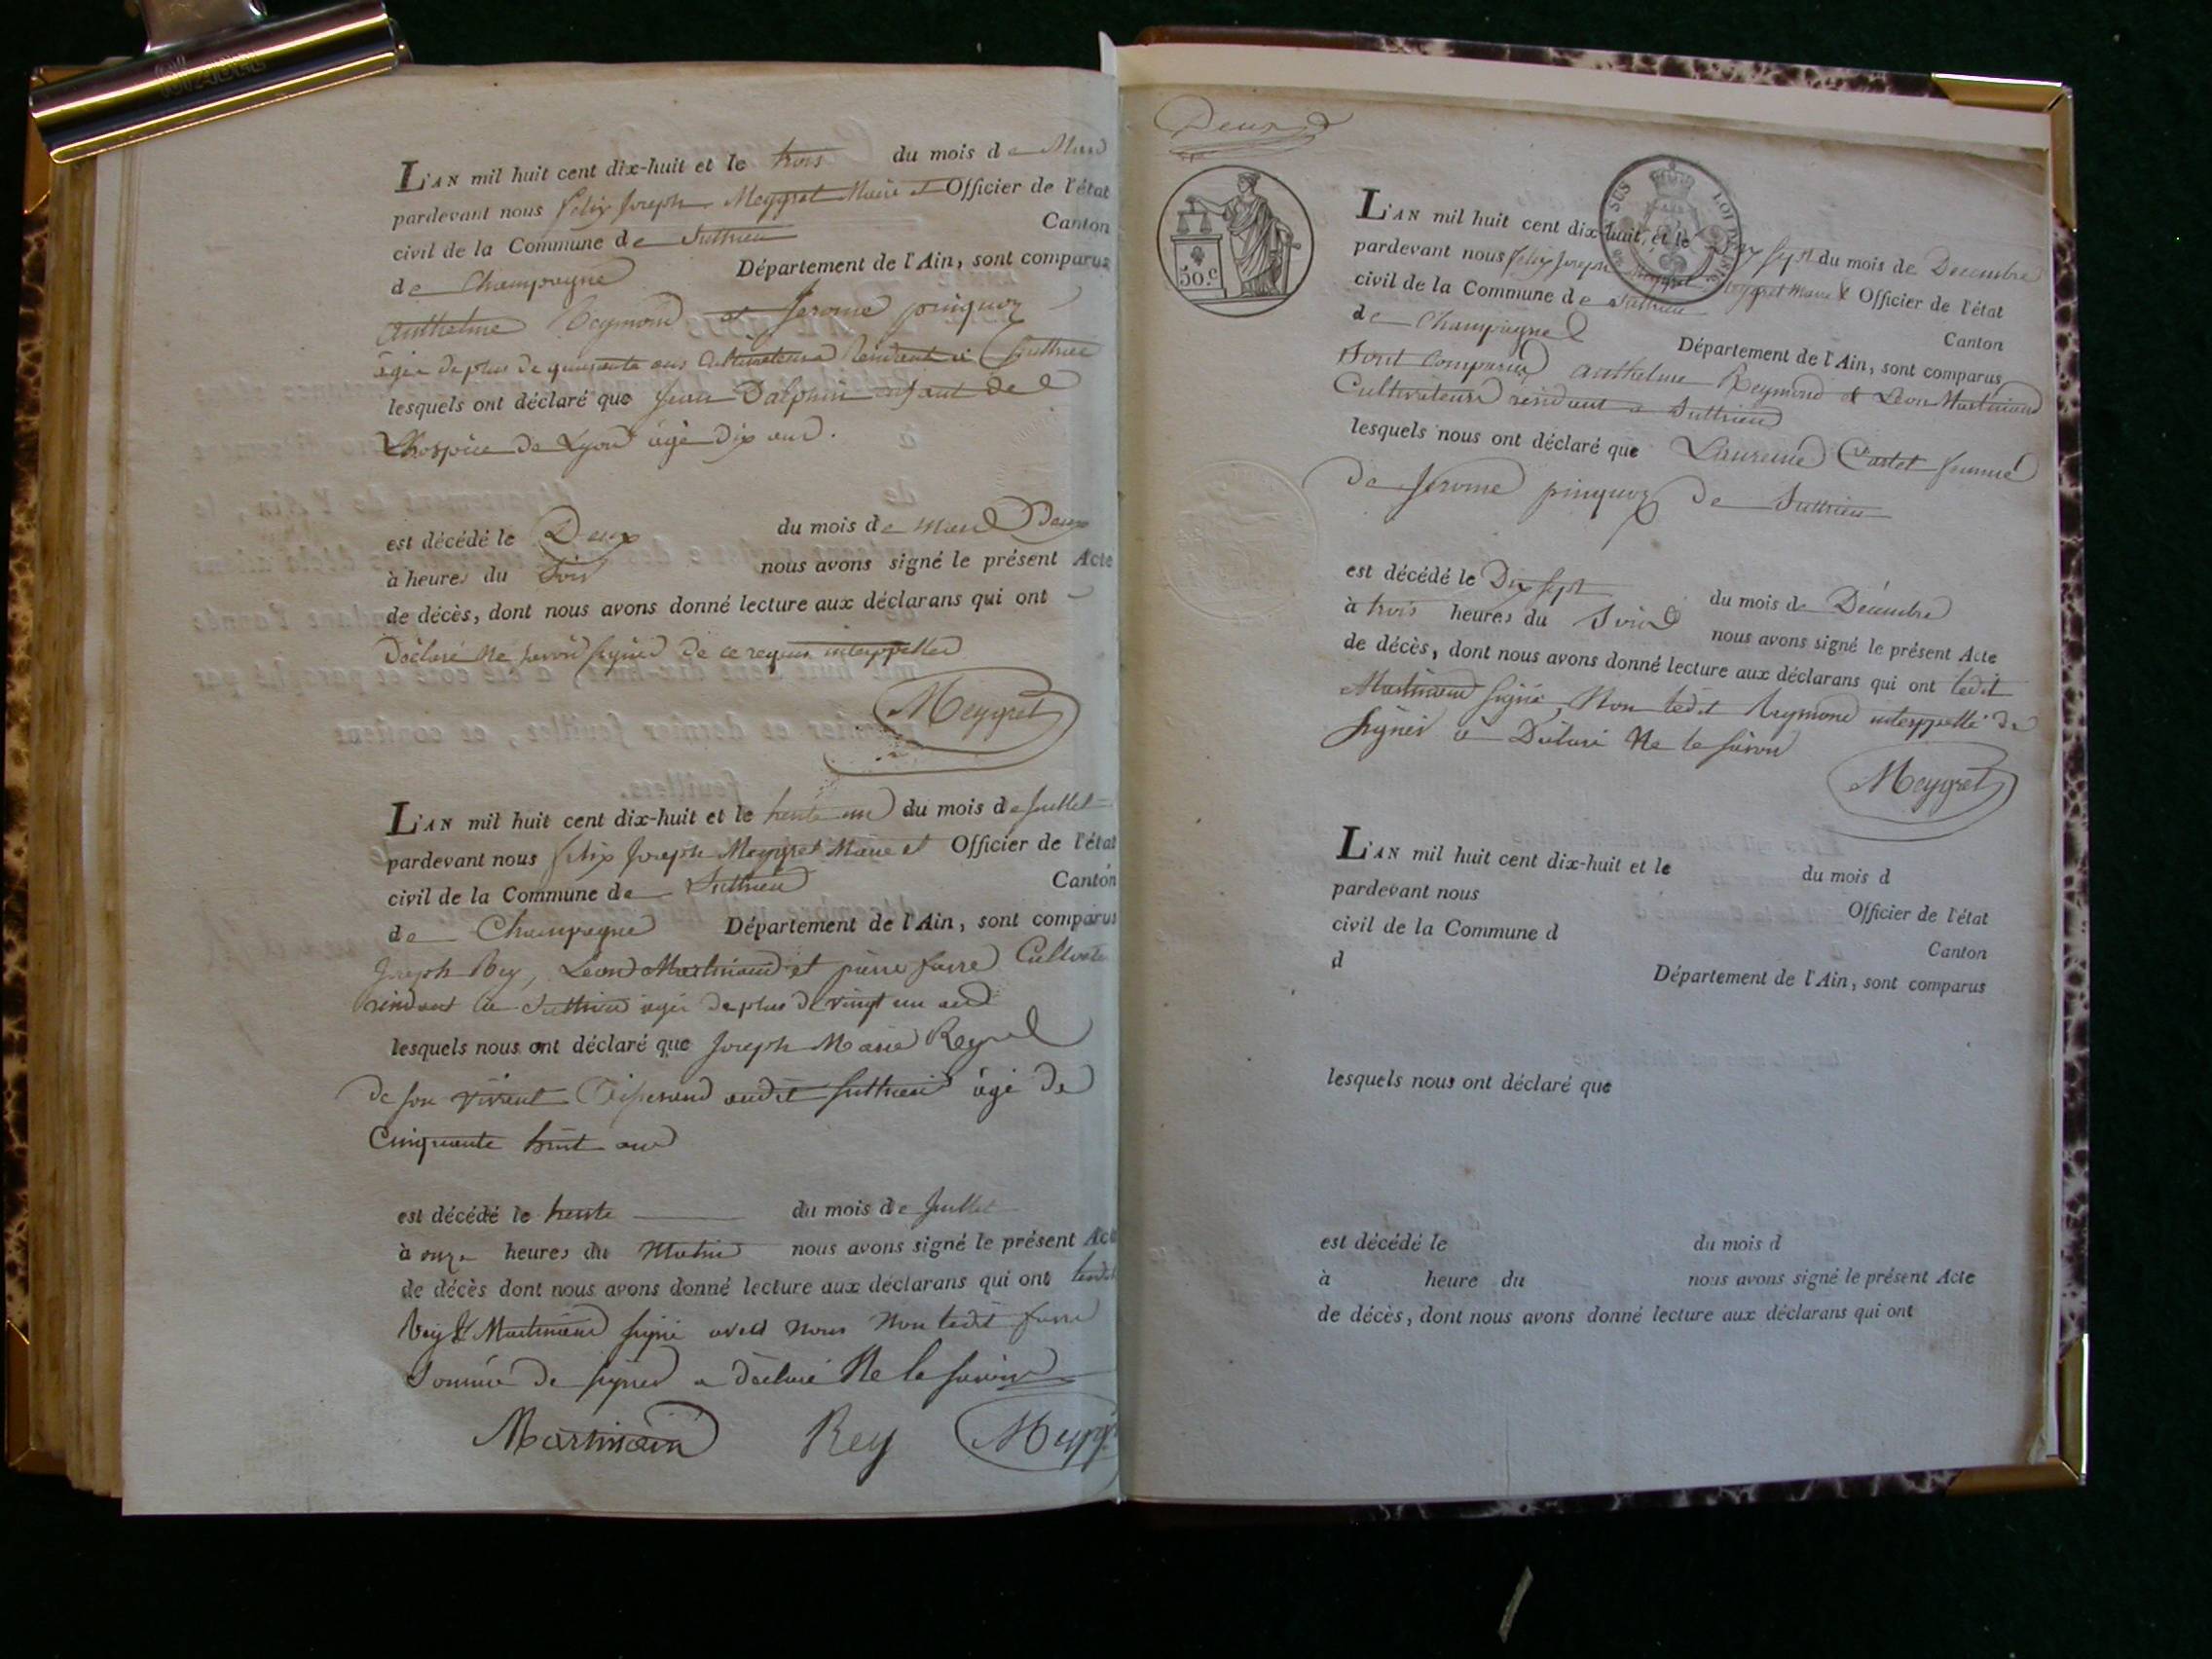 L'AN mil huit cent dix-huit et le trois du mois de Mars
pardevant nous felix Joseph Meygret Maire et Officier de l'état
civil de la Commune de Suthrieu Canton
de Champagne Département de l'Ain, sont comparus
Anthelme Reymond et Jerome pinquoz
agés de plus de quarante ans Cultivateurs résidant à Suthrieu
lesquels ont déclaré que Jean Dalphin enfant de
l'hospice de Lyon âgé dix ans.
est décédé le Deux du mois de mars Deux
à heures du soir nous avons signé le présent Acte
de décès, dont nous avons donné lecture aux déclarans qui ont
Déclaré ne savoir signer de ce requis interppellés
Meygret
L'AN mil huit cent dix-huit et le trente un du mois de Juillet
pardevant nous felix Joseph Meygret Maire et Officier de l'état
civil de la Commune de Suthrieu Canton
de Champagne Département de l'Ain, sont comparus
Joseph Rey, Léon Martinaud et pierre favre Cultivate
résidant à Suthrieu agés de plus de vingt un ans
lesquels nous ont déclaré que Joseph Marie
de son vivant audit Suthrieu âgé de
Cinquante huit ans
est décédé le trente du mois de Juillet
à onze heures du Matin nous avons signé le présent Acte
de décès dont nous avons donné lecture aux déclarans qui ont
Rey & Martinaud signé avec nous Non ledit favre
Sommé de signer a déclaré Ne le savoir
Rey
Deux
SUS LOI DE 1816
50.c
L'AN mil huit cent dix-huit, et le Dix sept du mois de Decembre
pardevant nous felix Joseph Meygret Maire & Officier de l'état
civil de la Commune de Suthrieu
de Champagne Canton
Département de l'Ain, sont comparus
Sont Comparus Anthelme Reymond & Léon Martinaud
Cultivateurs résidant à Suthrieu
lesquels nous ont déclaré que femme
de Jerome pinquoz de Suthrieu
est décédé le Dix sept du mois de Décembre
à trois heures du Soir nous avons signé le présent Acte
de décès, dont nous avons donné lecture aux déclarans qui ont ledit
Martinaud signé, Non ledit Reymond interppellé de
signer a Déclaré Ne le savoir
Meygret
L'AN mil huit cent dix-huit et le du mois d
pardevant nous Officier de l'état
civil de la Commune d Canton
d Département de l'Ain, sont comparus
lesquels nous ont déclaré que
est décédé le du mois d
à heure du nous avons signé le présent Acte
de décès, dont nous avons donné lecture aux déclarans qui ont